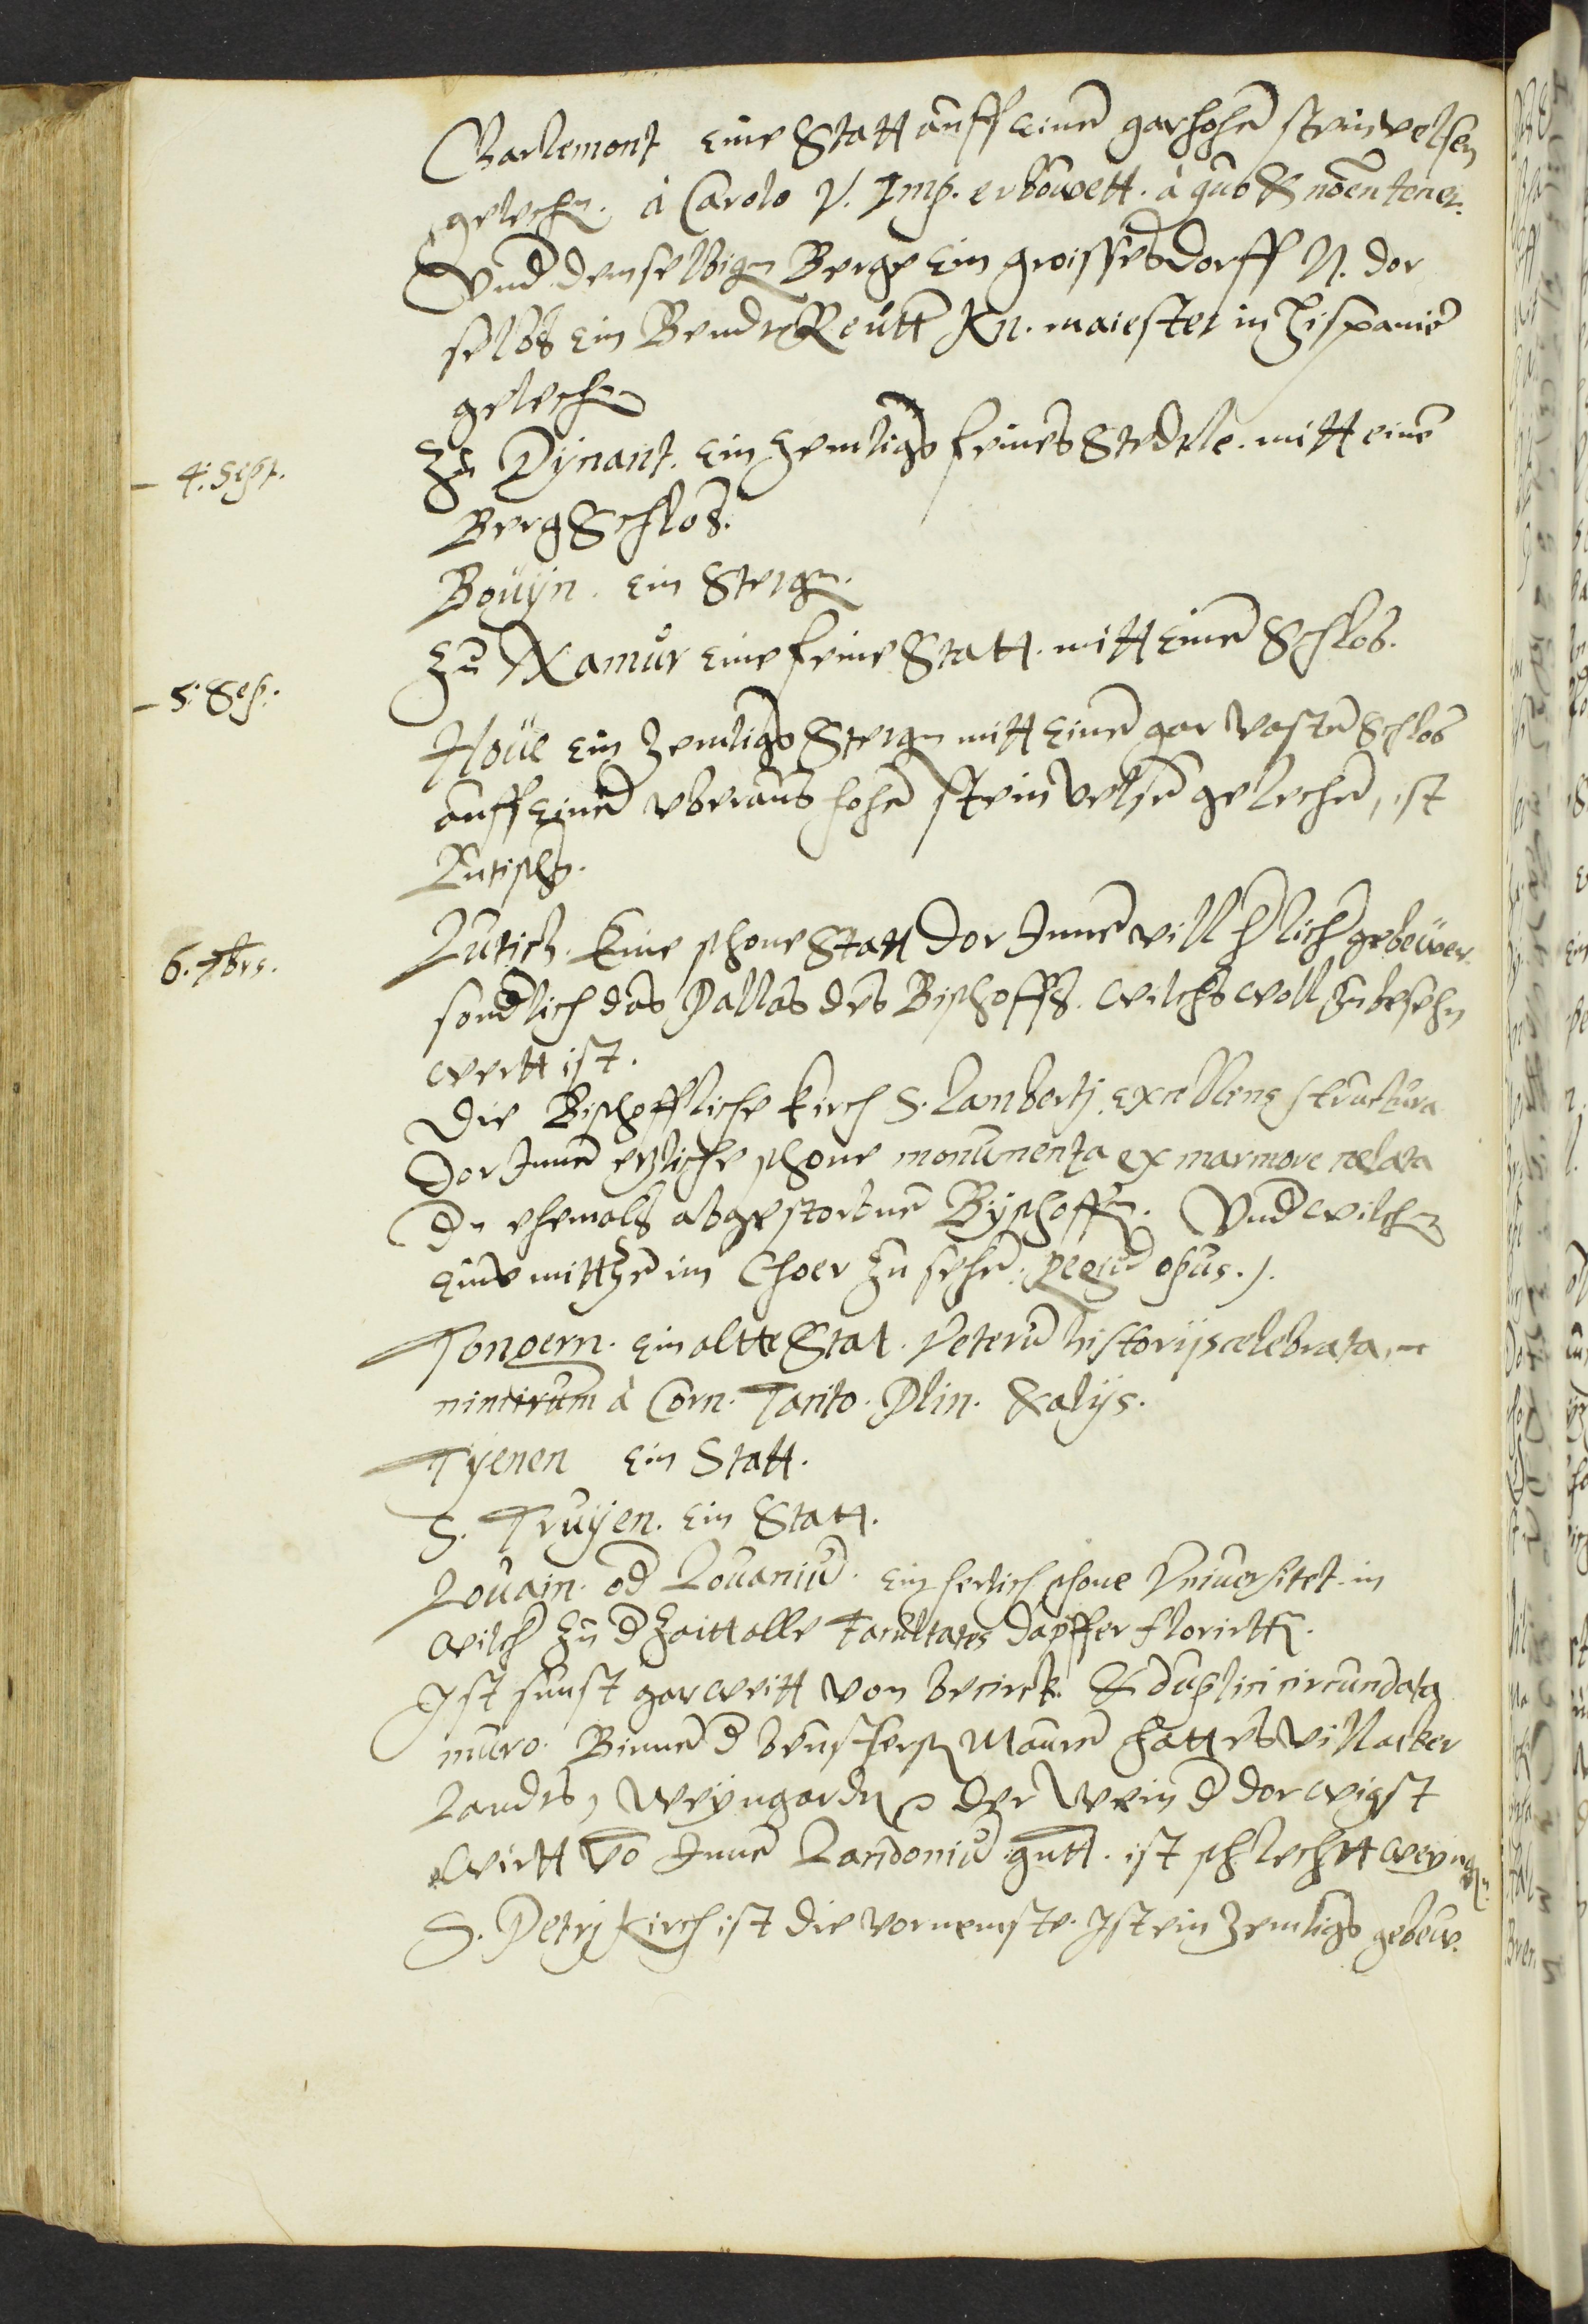 Charlemont eine Statt auff einē gar hohē steinvelsen
gelechn. à Carolo V. Imp. erbouwett. à quo & nōen tenet.
Vnd demselbign Berge ein groisses dorff N. dor
selbs ein Bende Reutt Kn. maiestet in Hispaniē
gelechn
4. Sept.
Zu Dynant. ein zemligs feines Stedtle. mitt einē
Bergschlos.
Bouyn. ein Stetgn.
Zu Namur eine feine Statt. mitt einē Schlos.
5. Sep.
Houe ein zemligs Stetgn mitt einē gar vastē Schlos
auff einē vberaus hohē steinvelsē gelechē, ist
Lutischs.
6. 7brs.
Lutich. Eine schone Statt dor Innē vill h̄lichē gebeuwe.
sond̄lich das Pallas des Bischoffs. wilchs woll zu besehn
wertt ist.
Die Bischoffliche kirch S. Lambertj excellens structura
Dor Innē etzliche schone monumenta ex marmore cælata
Dr ehemals abgestorbnē Byschoffn. Vnd wilchn
eins mittzē im Choer zu sehē. regiū opus.).
Tongern. ein altte Stat. Veterū historijs celebrata,
nimirum à Corn. Tacito. Plin. & alijs.
Tyenen ein Statt.
S. Truyen. ein Statt.
Louain. od̄ Louaniū. ein herlich schone Vniversitet. in
wilch zu d̄ zaitt alle Facultates dapffer floriettn.
Ist sunst gar weitt von becirck. & duplici circundata
muro. Binnē d̄ Maurē hatt es vill acker
Landes, Weyngardn der Wein d̄ dor wigst
wirtt vō Innē Landoniū gntt. ist schlechtt
S. Petrj Kirch ist die vornemste. Ist ein zemligs gebeuw.